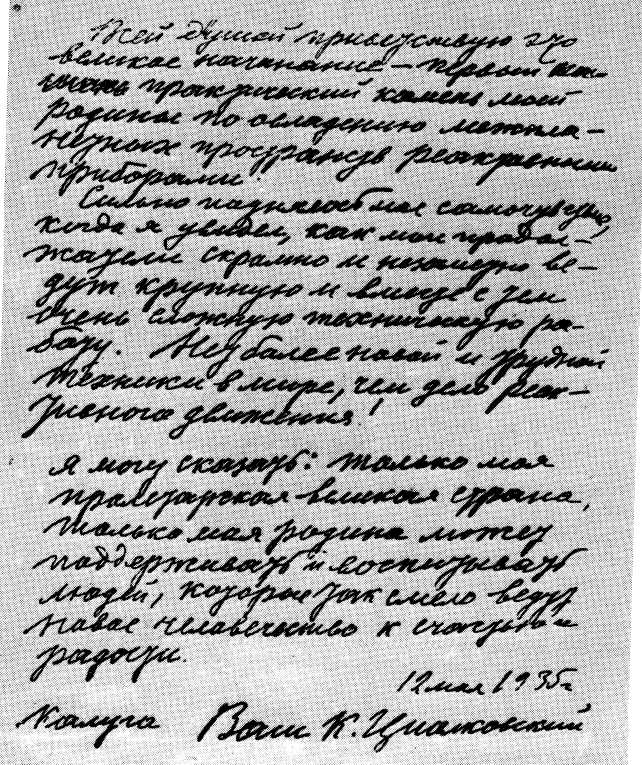 Всей душой приветствую это
великое начинание — первый
практический камень моей
родины по овладению межпла-
нетных пространств реактивными
приборами.
Сильно поднялось мое самочувствие,
когда я увидел, как мои продол-
жатели скромно и незаметно ве-
дут крупную и вместе с тем
очень сложную техническую ра-
боту. Нет более новой и трудной
техники в мире, чем дело реак-
тивного движения!
Я могу сказать: только моя
пролетарская великая страна,
только моя родина может
поддерживать и воспитывать
людей, которые так смело ведут
новое человечество к счастью и
радости.
12 мая 1935 г
Калуга Ваш К. Циолковский